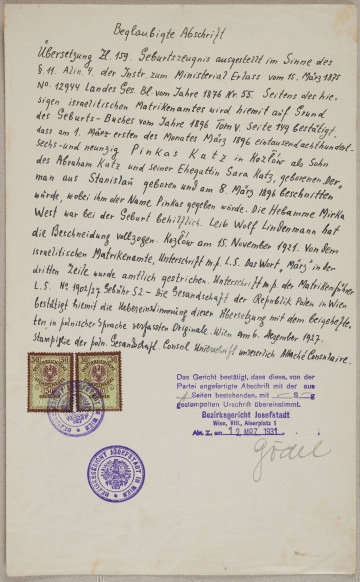 Beglaubigte Abschrift
Übersetzung Zl. 159. Geburtszeugnis ausgestellt im Sinne des
§. 11. Alin. 4. der Instr. zum Ministerial Erlass vom 15. März 1875
No. 12944 Landes Ges. Bl. vom Jahre 1876 Nr. 55. Seitens des hie-
sigen israelitischen Matrikenamtes wird hiemit auf Grund
des Geburts-Buches vom Jahre 1896 Tom V. Seite 149 bestätigt,
dass am 1. März ersten des Monates März 1896 eintausendachthundert-
sechs-und neunzig Pinkas Katz in Kozłów als Sohn
des Abraham Katz und seiner Ehegattin Sara Katz, geborenen Der„
man aus Stanislau geboren und am 8. März 1896 beschnitten
wurde, wobei ihm der Name Pinkas gegeben wurde. Die Hebamme Mirka
West war bei der Geburt behilflich. Leib Wolf Lindenmann hat
die Beschneidung vollzogen. Kozłów am 15. November 1921. Von dem
israelitischen Matrikenamte, Unterschrift m.p. L.S. Das Wort „März" in der
dritten Zeile wurde amtlich gestrichen. Unterschrift m.p. der Matrikenführer
L.S. No 1902/27 Gebühr 52.- Die Gesandschaft der Republik Polen in Wien
bestätigt hiemit die Uebereinstimmung dieser Übersetzung mit dem beigehefte-
ten, in polnischer Sprache verfassten Originale. Wien am 6. Dezember 1927.
Stampiglie der poln. Gesandschaft. Consul Unterschrift unleserlich Attaché Consulaire.
50 50
Das Gericht bestätigt, dass diese, von der
Partei angefertigte Abschrift mit der aus
Seiten bestehenden, mit S g
gestempelten Urschrift übereinstimmt.
Bezirksgericht Josefstadt
Wien, VIII., Alserplatz 1
Abt. I, am 12 MRZ 1931
Gödel
BEZIRKSGERICHT JOSEFSTADT IN WIEN